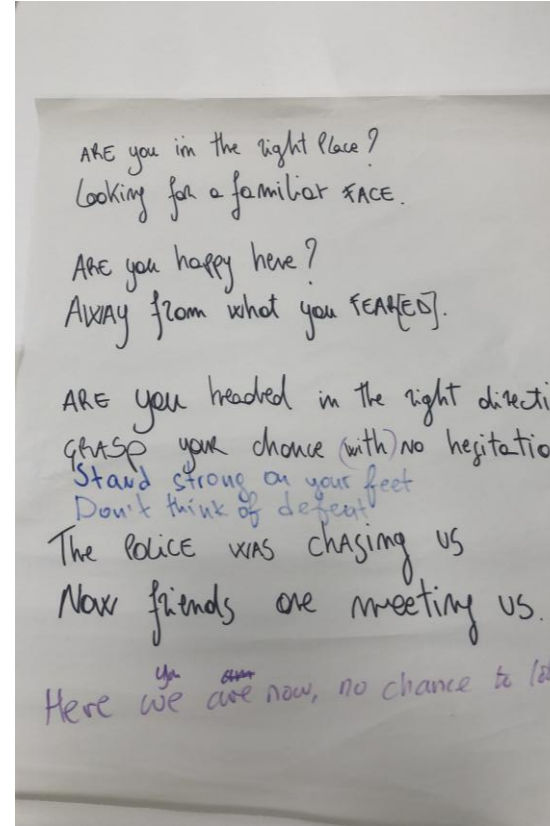 ARE you in the right Place?
Looking for a familiar FACE.
ARE you happy here?
AWAY from what you FEAR[ED].
ARE you headed in the right directi
GRASP your chance (with) NO hesitatio
Stand strong on your feet
Don't think of defeat
The POLICE WAS chasing US
Now friends are meeting US.
you
Here we are now, no chance to